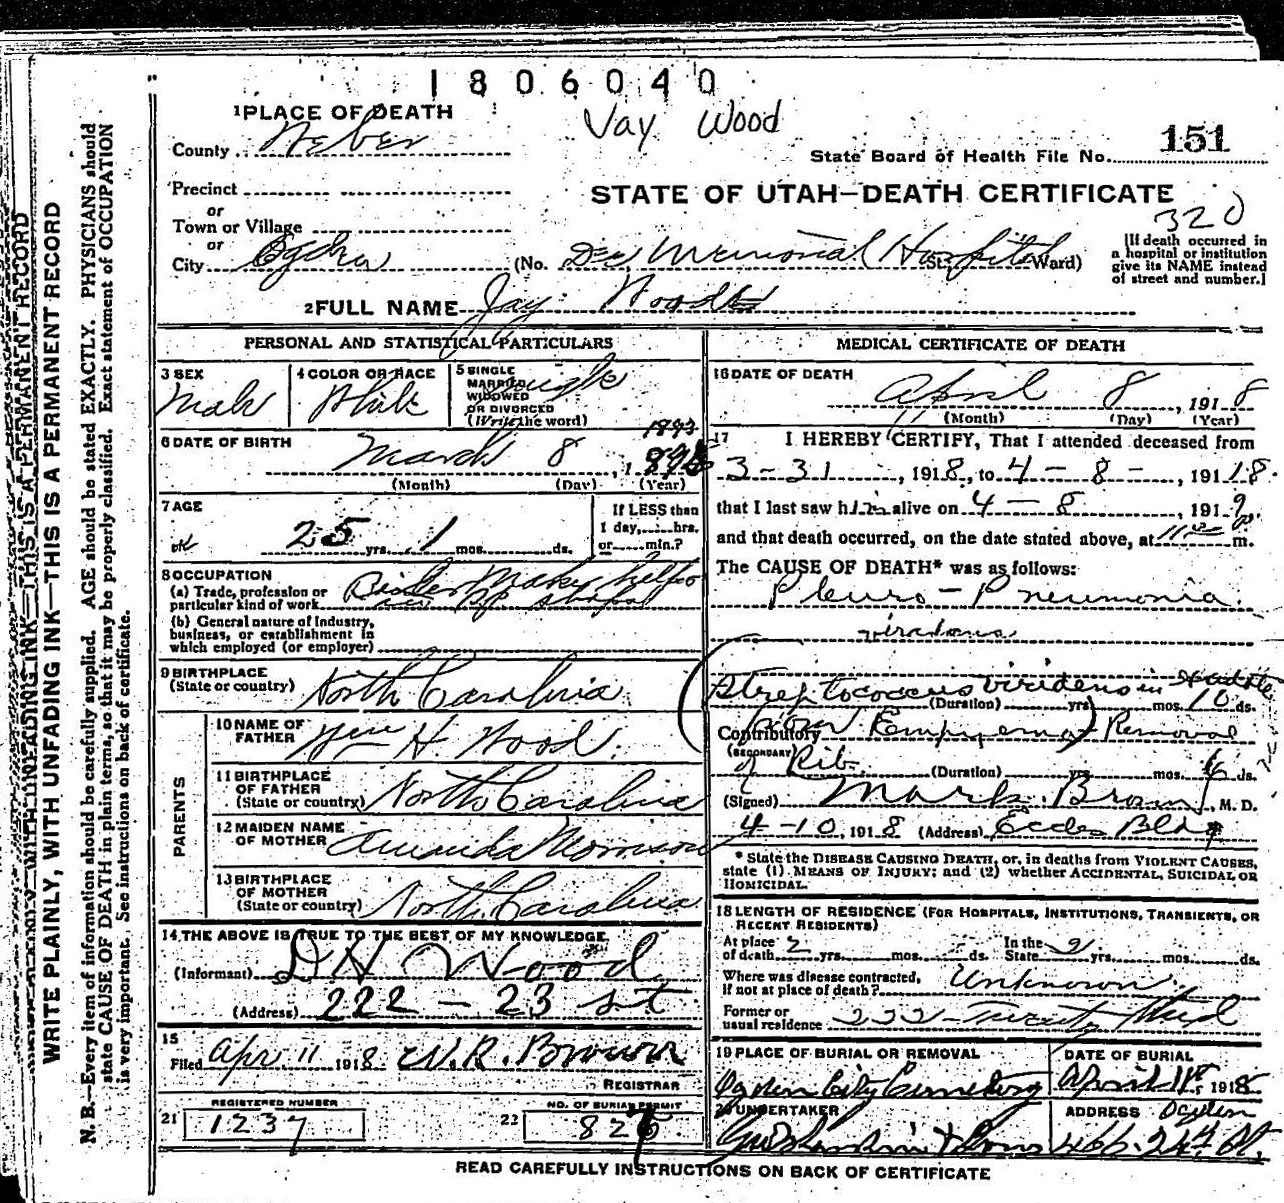 1806040
Vay Wood
1 PLACE OF DEATH
County Weber
State Board of Health File No. 151
Precinct
STATE OF UTAH—DEATH CERTIFICATE
320
or
Town or Village
or
City Ogden (No. Dee Memorial Hospital St. Ward)
[If death occurred in
a hospital or institution
give its NAME instead
of street and number.]
2 FULL NAME Jay Wood
PERSONAL AND STATISTICAL PARTICULARS
3 SEX
Male
4 COLOR OR RACE
White
5 SINGLE
MARRIED
WIDOWED
OR DIVORCED
(Write the word)
Single
6 DATE OF BIRTH
1893
March 8, 1
(Month) (Day) (Year)
7 AGE
25 yrs. 1 mos. ds.
If LESS than
1 day, hrs.
or min.?
8 OCCUPATION
(a) Trade, profession or
particular kind of work
Boiler Maker helper
(b) General nature of Industry,
business, or establishment in
which employed (or employer)
9 BIRTHPLACE
(State or country) North Carolina
PARENTS
10 NAME OF
FATHER Wm H Wood.
11 BIRTHPLACE
OF FATHER
(State or country) North Carolina
12 MAIDEN NAME
OF MOTHER Amanda Morrison
13 BIRTHPLACE
OF MOTHER
(State or country) North Carolina
14 THE ABOVE IS TRUE TO THE BEST OF MY KNOWLEDGE
(Informant) D H Wood
(Address) 222 – 23 st
15
Filed Apr 11 1918 W. R. Brown
REGISTRAR
REGISTERED NUMBER
21 1237
NO. OF BURIAL PERMIT
22 826
MEDICAL CERTIFICATE OF DEATH
16 DATE OF DEATH
April 8, 1918
(Month) (Day) (Year)
17 I HEREBY CERTIFY, That I attended deceased from
3-31, 1918, to 4-8-, 1918
that I last saw him alive on 4-8, 191
and that death occurred, on the date stated above, at m.
The CAUSE OF DEATH* was as follows:
Pleuro-Pneumonia
viridans
(Streptococcus viridans in
(Duration) yrs. mos. 10 ds.
Contributory Empyema) Removal
(SECONDARY)
of Rib.
(Duration) yrs. mos. ds.
(Signed) Mark Brown, M. D.
4-10, 1918 (Address) Eccles Bldg
* State the DISEASE CAUSING DEATH, or, in deaths from VIOLENT CAUSES,
state (1) MEANS OF INJURY; and (2) whether ACCIDENTAL, SUICIDAL OR
HOMICIDAL.
18 LENGTH OF RESIDENCE (FOR HOSPITALS, INSTITUTIONS, TRANSIENTS, OR
RECENT RESIDENTS)
At place
of death 2 yrs. mos. ds.
In the
State 9 yrs. mos. ds.
Where was disease contracted,
if not at place of death? Unknown
Former or
usual residence 222 Twenty third
19 PLACE OF BURIAL OR REMOVAL
Ogden City Cemetery
DATE OF BURIAL
April 11, 1918
20 UNDERTAKER
& Sons
ADDRESS Ogden
466-24th St.
READ CAREFULLY INSTRUCTIONS ON BACK OF CERTIFICATE
WRITE PLAINLY, WITH UNFADING INK—THIS IS A PERMANENT RECORD
N. B.—Every item of information should be carefully supplied. AGE should be stated EXACTLY. PHYSICIANS should
state CAUSE OF DEATH in plain terms, so that it may be properly classified. Exact statement of OCCUPATION
is very important. See instructions on back of certificate.